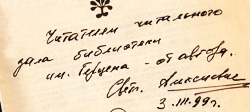 Читателям читального
зала библиотеки
им. Герцена – от автора.
Свет. Алексиевич
3.III.99 г.